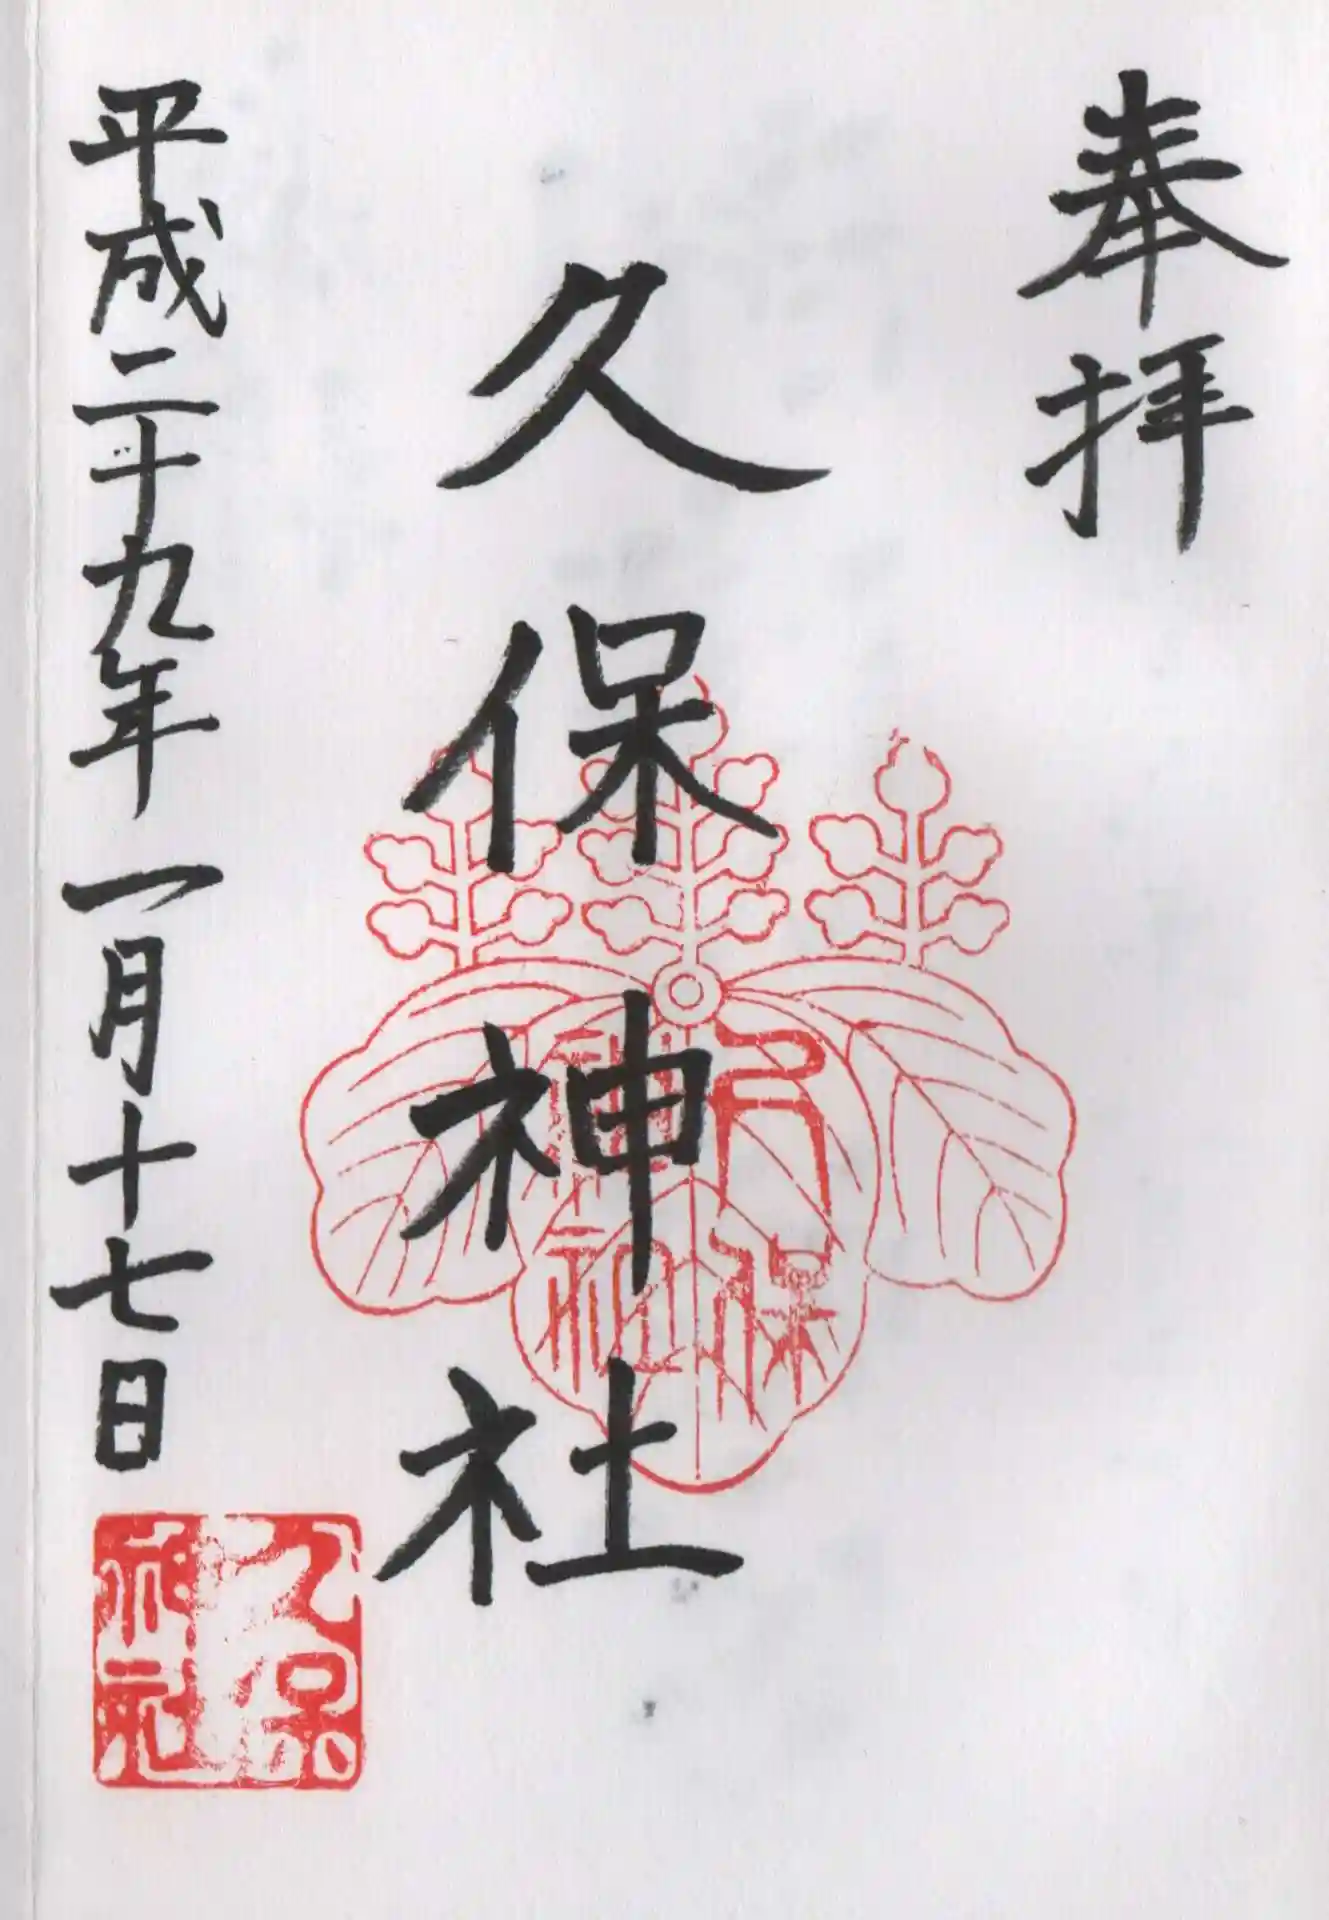 奉拝
久保神社
平成二十九年一月十七日
久保
神社
久保
神社